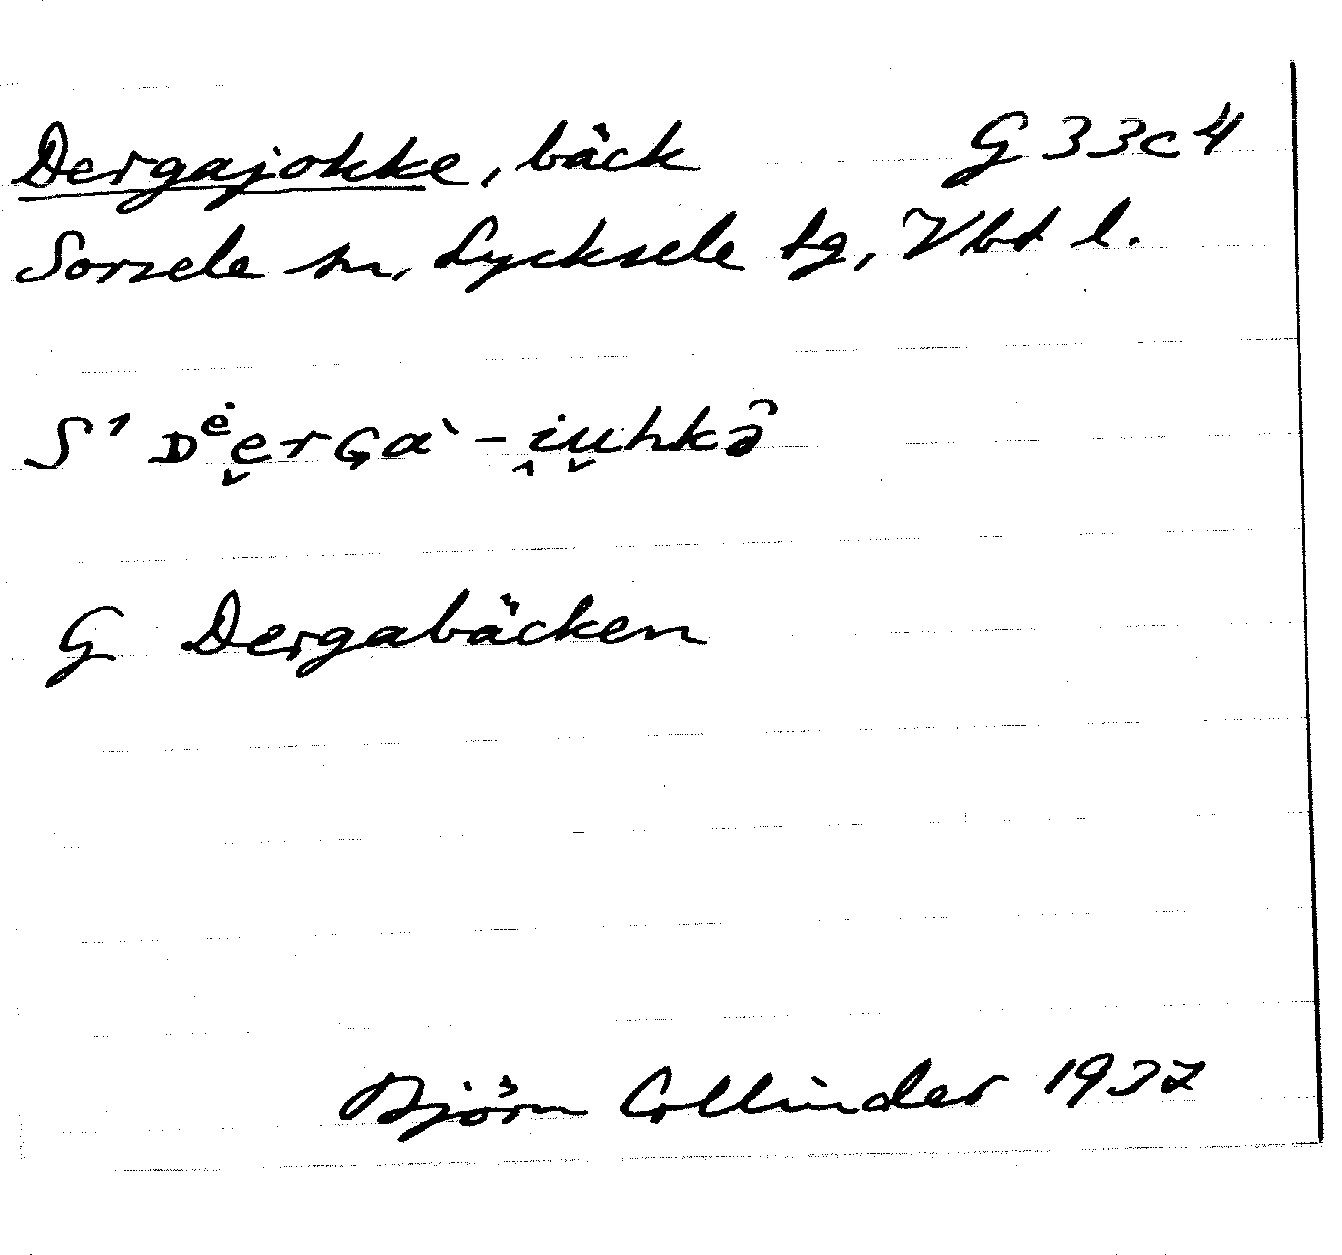 Dergajokke, bäck G 33c4
Sorsele sn, Lycksele tg, Vbt l.
S¹ Dᵉ̇e̬rGa`-i̭u̬hkə̑
G Dergabäcken
Björn Collinder 1937